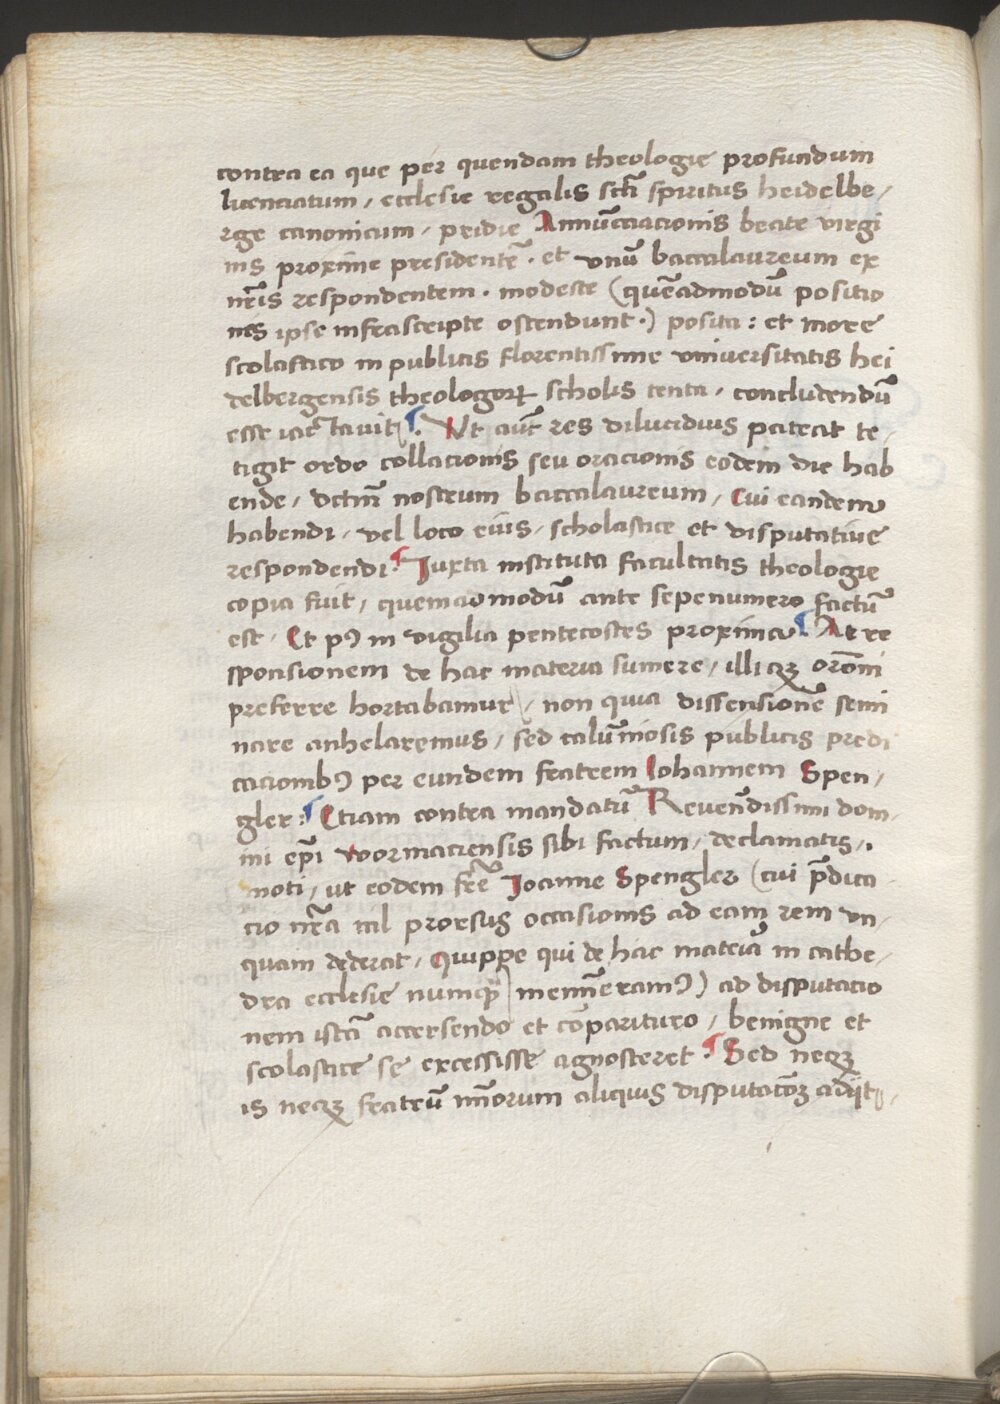 contra ea que per quendam theologie profundum
licenciatum / ecclesie regalis sctī spiritus heidelbe /
rge canonicum / pridie Annūcciacionis beate virgi
nis proxime presidentē · et vnū baccalaureum ex
nr̄is respondentem · modeste (quēadmodū positio
nes ipse infrascripte ostendunt ·) posita : et more
scolastico in publicis florentissime vniuersitatis hei
delbergensis theologoꝝ scholis tenta · concludendū
esse iactauit · Vt aūt res dilucidius pateat te /
tigit ordo collacionis seu oracionis eodem die hab
ende / dictū nostrum baccalaureum / Cui eandem
habendi / vel loco eius / scholastice et disputatiue
respondendi · Iuxta instituta facultatis theologie
copia fuit / quemadmodū ante sepenumero factū
est · Et pꝰ in vigilia pentecostes proxima · At re
sponsionem de hac materia sumere / illiqꝫ orōni
preferre hortabamur / non quia dissensionē semi
nare anhelaremus / sed calūniosis publicis predi
cacionibꝰ per eundem fratrem Iohannem Spen /
gler : Etiam contra mandatū Reuendissimi dom
ini ep̄i wormaciensis sibi factum / declamatis /
moti / ut eodem fr̄e Joanne Spengler (cui p̄dica
cio nr̄a nil prorsus occasionis ad eam rem vn /
quam dederat / Quippe qui de hac materia in cathe /
dra ecclesie numqꝫ memineramꝰ) ad disputacio
nem istā accersendo et cōparituro / benigne et
scolastice se excessisse agnosceret · Sed neqꝫ
is neqꝫ fratrū nr̄orum aliquis disputacōꝫ adijt /